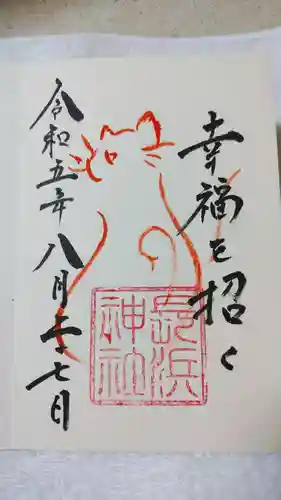 幸福を招く
長浜
神社
令和五年八月二十七日